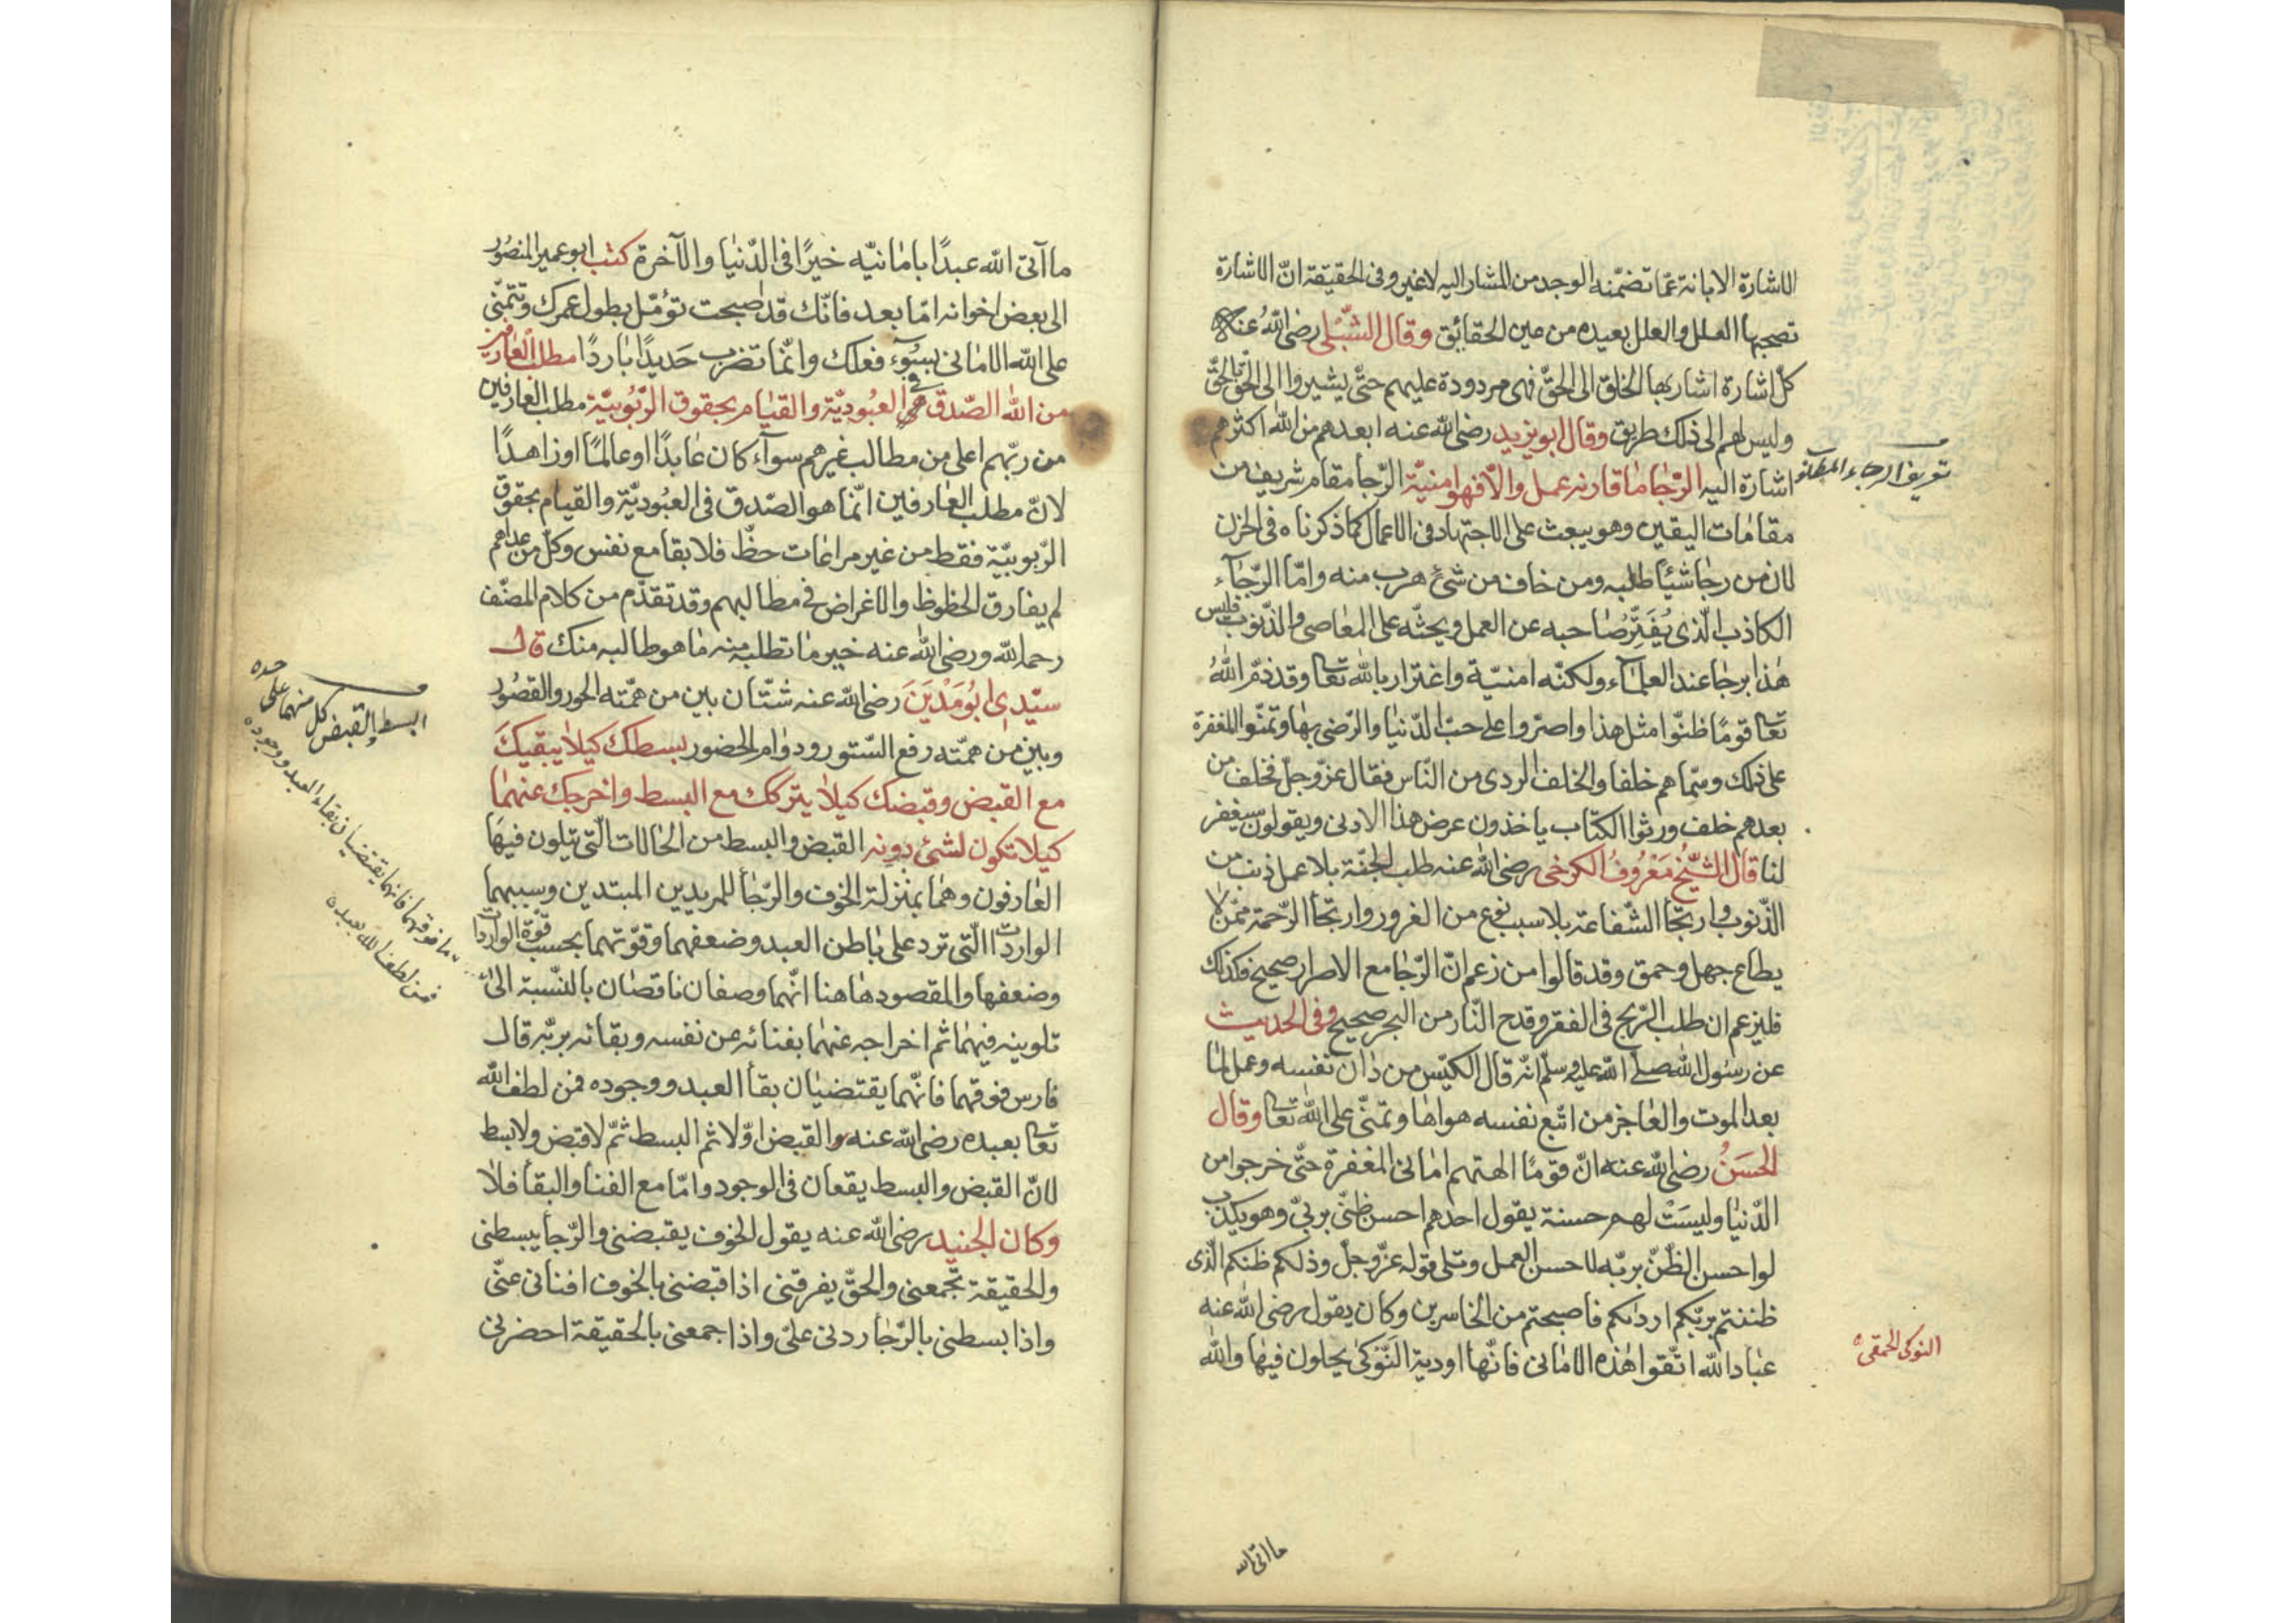 الاشارة الابانة عمّا تضمّنه الوجد من المشار اليه لاغير وفى الحقيقة انّ الاشارة
تصحبها العلل والعلل بعيدة من عين الحقائق وقال الشّبلى رضى اللّٰه عنه
كلّ اشارة اشار بها الخلق الى الحقّ فهى مردودة عليهم حتّى يشيروا الى الحقّ بالحقّ
وليس لهم الى ذلك طريق وقال ابو يزيد رضى اللّٰه عنه ابعدهم من اللّٰه اكثرهم
اشارة اليه الرّجا ما قارنه عمل والّا فهو امنيّة الرّجا مقام شريف من
مقامات اليقين وهو يبعث على الاجتهاد فى الاعمال كما ذكرناه فى الحزن
لان من رجا شيئًا طلبه ومن خاف من شئ هرب منه وامّا الرّجآء
الكاذب الّذى يُفَتِّرُ صاحبه عن العمل ويحثّه على المعاصى والذّنوب فليس
هذا برجا عند العلمآء ولكنّه امنيّة واغترار باللّٰه تعا وقد ذمّ اللّٰهُ
تعا قومًا ظنّوا مثل هذا واصرّوا على حبّ الدّنيا والرّضى بها وتمنّوا المغفرة
على ذلك وسمّاهم خلفا والخلف الردى من النّاس فقال عزّ وجلّ فخلف من
بعدهم خلف ورثوا الكتاب ياخذون عرض هذا الادنى ويقولون سيغفر
لنا قال الشّيخ مَعْرُوفُ الكرخى رضى اللّٰه عنه طلب الجنّة بلا عمل ذنب من
الذّنوب وارتجا الشّفاعة بلا سبب نوع من الغرور وارتجأ الرّحمة ممّن لا
يطاع جهل وحمق وقد قالوا من زعم انّ الرّجا مع الاصرار صحيح فكذلك
فليزعم ان طلب الرّبح فى الفقر وقدح النّار من البحر صحيح وفى الحديث
عن رسول اللّٰه صلّى اللّٰه عليه وسلّم انّه قال الكيّس من دان نفسه وعمل لما
بعد الموت والعاجز من اتّبع نفسه هواها وتمنّى على اللّٰه تعا وقال
الحسَنُ رضى اللّٰه عنه انّ قومًا الهتهم امانى المغفرة حتّى خرجوا من
الدّنيا وليسَتْ لهم حسنة يقول احدهم احسن ظنّى بربّى وهو يكذب
لو احسن الظنّ بربّه لاحسن العمل وتلى قوله عزّ وجلّ وذلكم ظنكم الّذى
ظننتم بربّكم ارداكم فاصبحتم من الخاسرين وكان يقول رضى اللّٰه عنه
عباد اللّٰه اتّقوا هذه الامانى فانّها اودية النَّوْكى يحلون فيها واللّٰه
تعريف الرجاء المطلق
النوكى الحمقى
ما اتى الله
ما آتى اللّٰه عبدًا بامانيّه خيرًا فى الدّنيا والآخرة كتب ابو عمير المنصُور
الى بعض اخوانه امّا بعد فانّك قد اصبحت تؤمّل بطول عمرك وتتمنّى
على اللّٰه الامانى بسُوء فعلك وانّما تضرب حَديدًا باردًا مطلب العارفين
من اللّٰه الصّدق فى العبُوديّة والقيام بحقوق الرّبُوبيّة مطلب العارفين
من ربّهم اعلى من مطالب غيرهم سوآء كان عابدًا او عالمًا او زاهدًا
لانّ مطلب العارفين انّما هو الصّدق فى العبُوديّة والقيام بحقوق
الرّبوبيّة فقط من غير مراعات حظّ فلا بقا مع نفس وكلّ من عداهم
لم يفارق الحظوظ والاغراض فى مطالبهم وقد تقدّم من كلام المصنّف
رحمه اللّٰه ورضى اللّٰه عنه خير ما تطلبه منه ما هو طالبه منك قال
سيّدى ابُو مَدْيَنَ رضى اللّٰه عنه شتّان بين من همّته الحور والقصُور
وبين من همّته رفع السّتور ودوام الحضور بسطك كيلا يبقيكَ
مع القبض وقبضك كيلا يتركك مع البسط واخرجك عنهما
كيلا تكون لشئ دونه القبض والبسط من الحالات الّتى يتلون فيها
العارفون وهما بمنزلة الخوف والرّجأ للمريدين المبتدين وسببهما
الواردات الّتى ترد على باطن العبد وضعفهما وقوّتهما بحسب قوّة الواردات
وضعفها والمقصود هاهنا انّهما وصفان ناقصان بالنّسبة الى
تلوينه فيهما ثم اخراجه عنهما بفنائه عن نفسه وبقائه بربّه قال
فارس فوقهما فانّهما يقتضيان بقأ العبد ووجوده فمن لطف اللّٰه
تعا بعبده رضى اللّٰه عنه القبض اوّلا ثم البسط ثمّ لا قبض ولا بسط
لانّ القبض والبسط يقعان فى الوجود وامّا مع الفنا والبقأ فلا
وكان الجنيد رضى اللّٰه عنه يقول الخوف يقبضنى والرّجأ يبسطنى
والحقيقة تجمعنى والحقّ يفرقنى اذا قبضنى بالخوف افنانى عنّى
واذا بسطنى بالرّجأ ردنى علىّ واذا جمعنى بالحقيقة احضرنى
البسط والقبض كل منهما على حده
ما فوقهما فانهما يقتضيان بقاء العبد ووجوده
فمن لطف الله بعبده